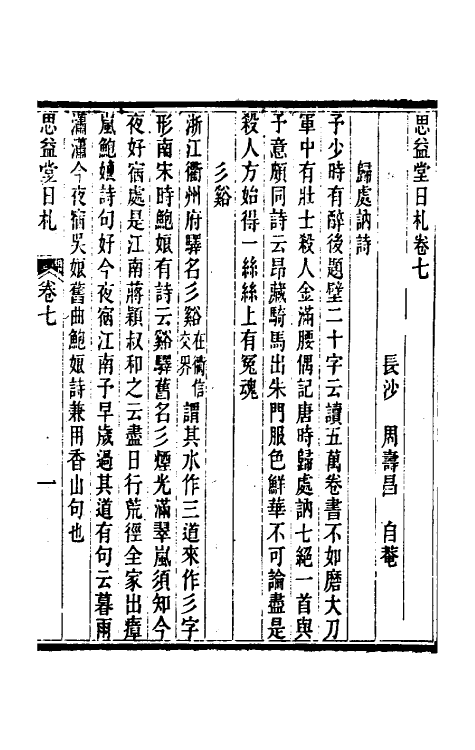 思益堂日札卷七
長沙　周壽昌　自菴
歸處訥詩
予少時有醉後題壁二十字云讀五萬卷書不如磨大刀
軍中有壯士殺人金滿腰偶記唐時歸處訥七絕一首與
予意頗同詩云昂藏騎馬出朱門服色鮮華不可論盡是
殺人方始得一絲絲上有冤魂
彡谿
浙江衢州府驛名彡谿在衢信交界謂其水作三道來作彡字
形南宋時鮑娘有詩云谿驛舊名彡煙光滿翠嵐須知今
夜好宿處是江南蔣穎叔和之云盡日行荒徑全家出瘴
嵐鮑孃詩句好今夜宿江南予早歲過其道有句云暮雨
瀟瀟今夜宿吳娘舊曲鮑娘詩兼用香山句也
思益堂日札
卷七
一